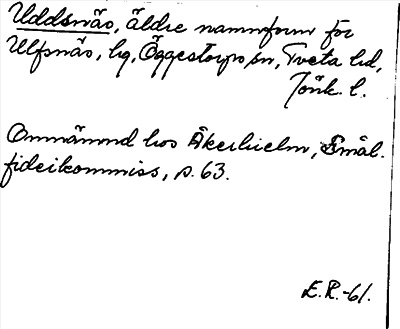 Uddsnäs, äldre namnform för
Ulfsnäs, hg, Öggestorps sn, Tveta hd,
Jönk. l.
Omnämnd hos Åkerhielm, Smål.
fideikommiss, s. 63.
E.R.-61.